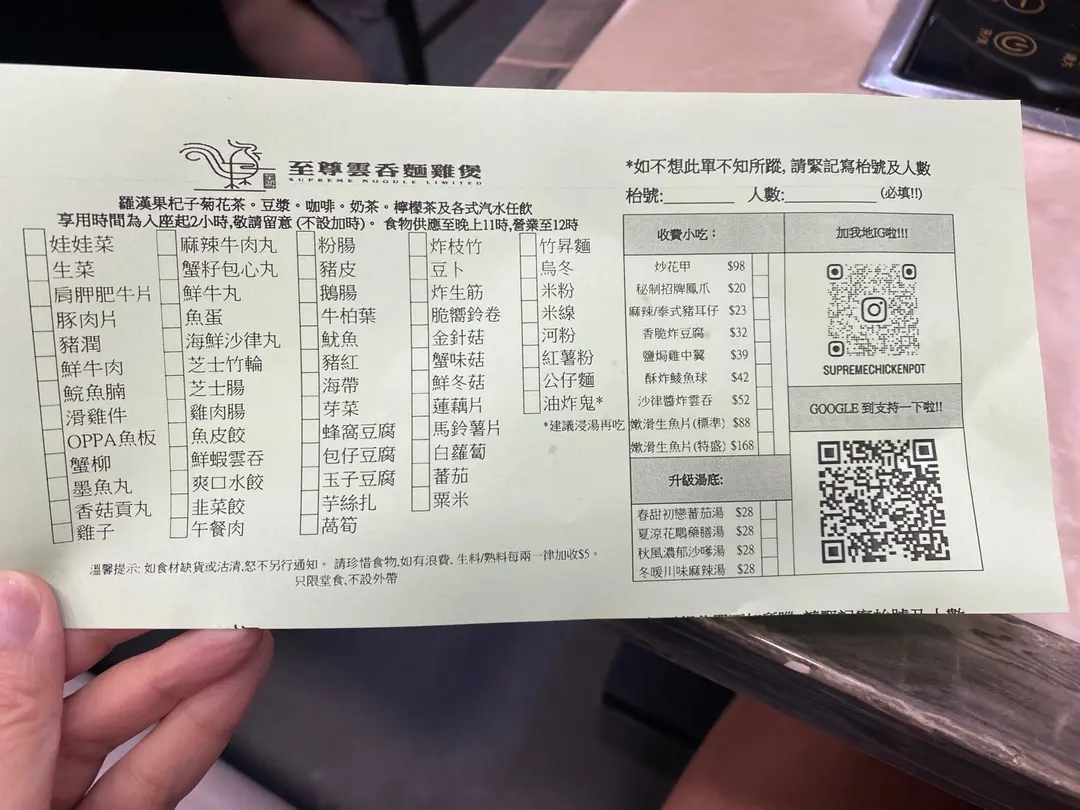 至尊雲吞麵雞煲
SUPREME NOODLE LIMITED
羅漢果杞子菊花茶。豆漿。咖啡。奶茶。檸檬茶及各式汽水任飲
享用時間為入座起2小時,敬請留意 (不設加時)。 食物供應至晚上11時,營業至12時
娃娃菜
生菜
肩胛肥牛片
豚肉片
豬潤
鮮牛肉
鯇魚腩
滑雞件
OPPA魚板
蟹柳
墨魚丸
香菇貢丸
雞子
麻辣牛肉丸
蟹籽包心丸
鮮牛丸
魚蛋
海鮮沙律丸
芝士竹輪
芝士腸
雞肉腸
魚皮餃
鮮蝦雲吞
爽口水餃
韭菜餃
午餐肉
粉腸
豬皮
鵝腸
牛柏葉
魷魚
豬紅
海帶
芽菜
蜂窩豆腐
包仔豆腐
玉子豆腐
芋絲扎
萵筍
炸枝竹
豆卜
炸生筋
脆嚮鈴卷
金針菇
蟹味菇
鮮冬菇
蓮藕片
馬鈴薯片
白蘿蔔
蕃茄
粟米
竹昇麵
烏冬
米粉
米線
河粉
紅薯粉
公仔麵
油炸鬼*
*建議浸湯再吃
溫馨提示: 如食材缺貨或沽清,恕不另行通知。 請珍惜食物,如有浪費, 生料/熟料每兩一律加收$5。
只限堂食,不設外帶
*如不想此單不知所蹤, 請緊記寫枱號及人數
枱號:______ 人數:______ (必填!!)
收費小吃：
炒花甲 $98
秘制招牌鳳爪 $20
麻辣/泰式豬耳仔 $23
香脆炸豆腐 $32
鹽焗雞中翼 $39
酥炸鯪魚球 $42
沙律醬炸雲吞 $52
嫩滑生魚片(標準) $88
嫩滑生魚片(特盛) $168
升級湯底:
春甜初戀蕃茄湯 $28
夏涼花鵰藥膳湯 $28
秋風濃郁沙嗲湯 $28
冬暖川味麻辣湯 $28
加我地IG啦!!!
SUPREMECHICKENPOT
GOOGLE 到支持一下啦!!